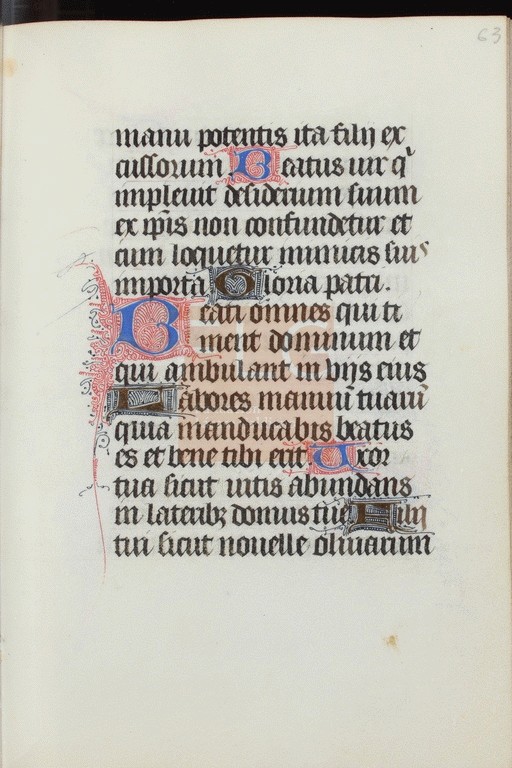 63
manu potentis ita filij ex
cussorum Beatus uir q̇
impleuit desiderium suum
ex ip̄is non confundetur et
cum loquetur inimicis suis
in porta Gloria patri.
Beati omnes qui ti
ment dominum et
qui ambulant in vijs eius
Labores manuū tuarū
quia manducabis beatus
es et bene tibi erit Uxor
tua sicut uitis abundans
in laterib; domus tue Filij
tui sicut nouelle oliuarum